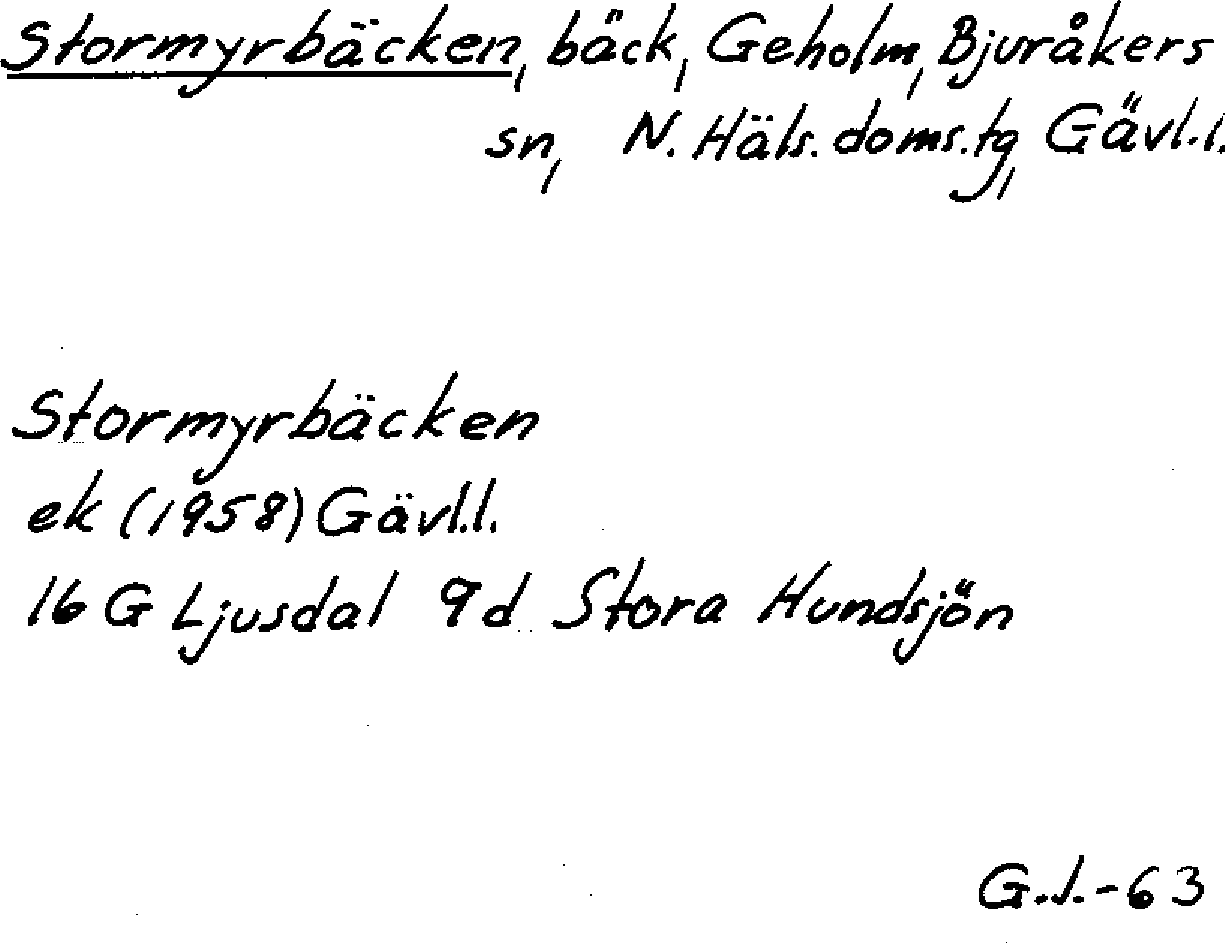 Stormyrbäcken, bäck, Geholm, Bjuråkers
sn, N. Häls. doms. tg, Gävl.l.
Stormyrbäcken
ek (1958) Gävl.l.
16 G Ljusdal 9d Stora Hundsjön
G.J.-63